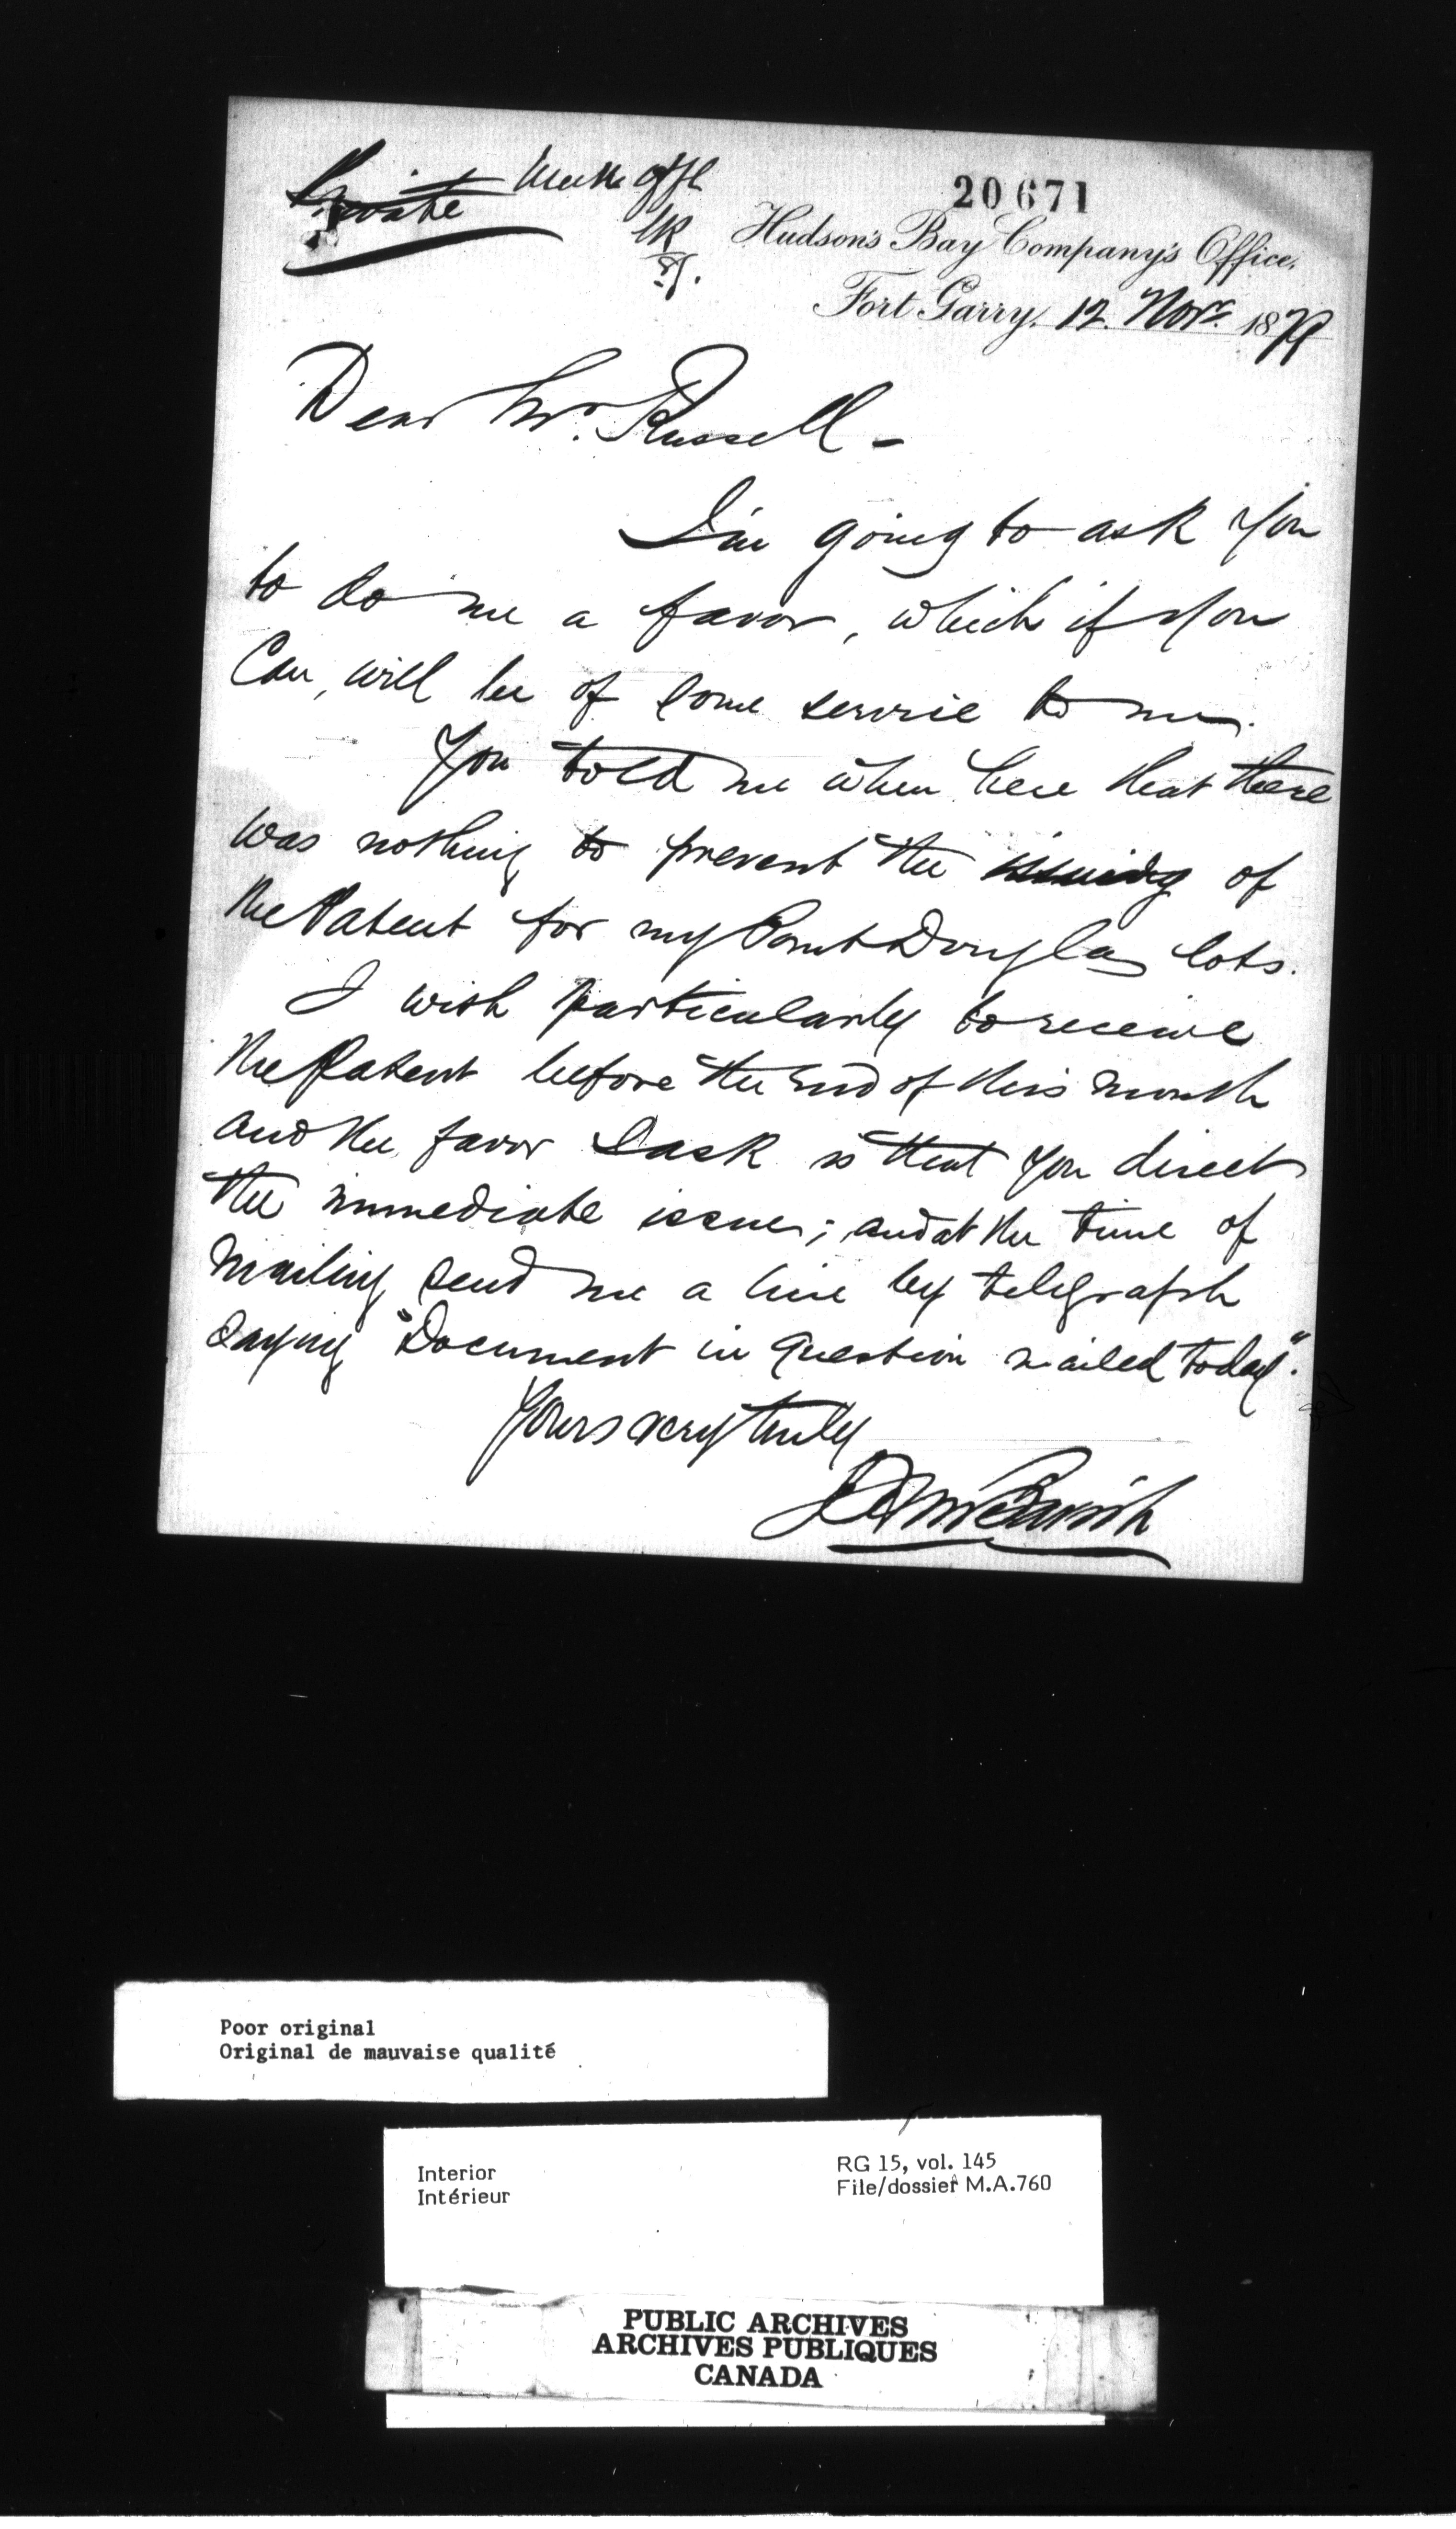 Private
20671
Hudson's Bay Company's Office,
Fort Garry, 12. Novr. 1879
Dear Mr. Russell -
I'm going to ask you
to do me a favor, which if you
can, will be of some service to me.
You told me when here that there
was nothing to prevent the issuing of
the Patent for my Point Douglas lots.
I wish particularly to receive
the Patent before the end of this month
and the favor I ask is that you direct
the immediate issue; and at the time of
mailing send me a line by telegraph
saying "Document in question mailed today".
Yours very truly
Poor original
Original de mauvaise qualité
Interior
Intérieur
RG 15, vol. 145
File/dossier M.A.760
PUBLIC ARCHIVES
ARCHIVES PUBLIQUES
CANADA